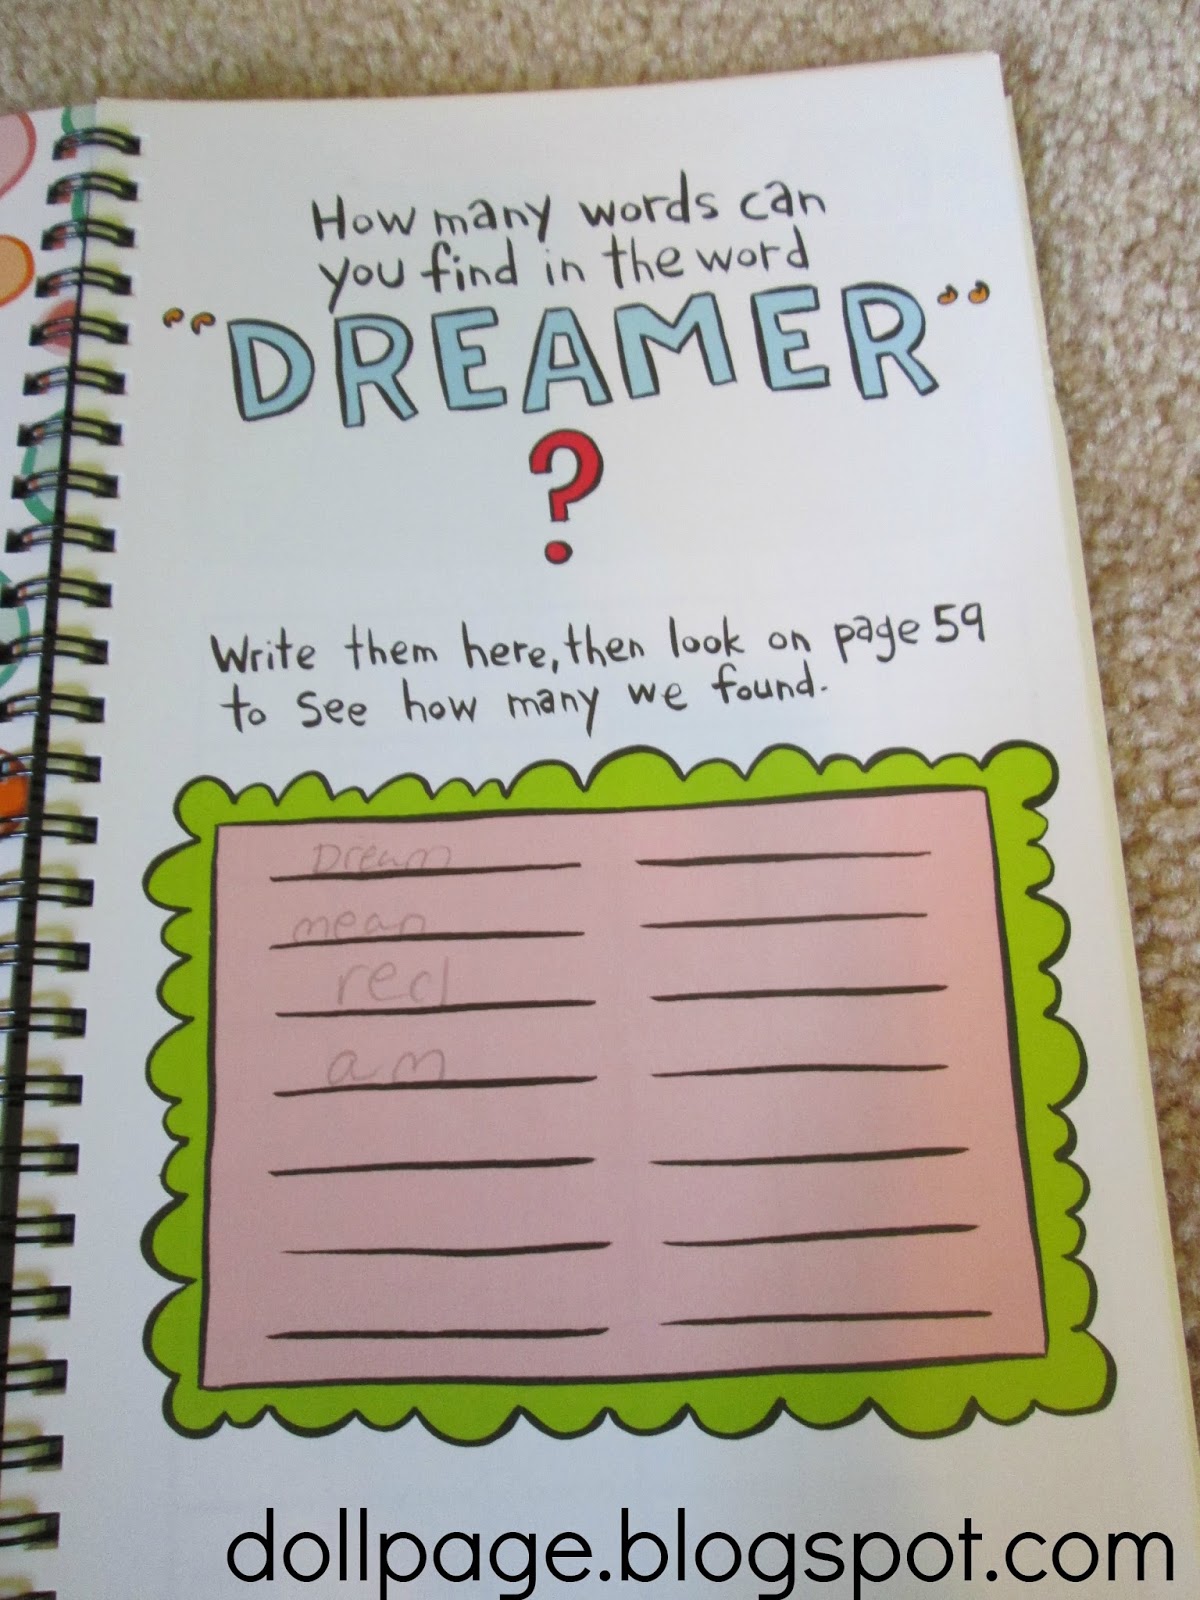 How many words can
you find in the word
"DREAMER"
?
Write them here, then look on page 59
to see how many we found.
Dream
mean
red
am
dollpage.blogspot.com